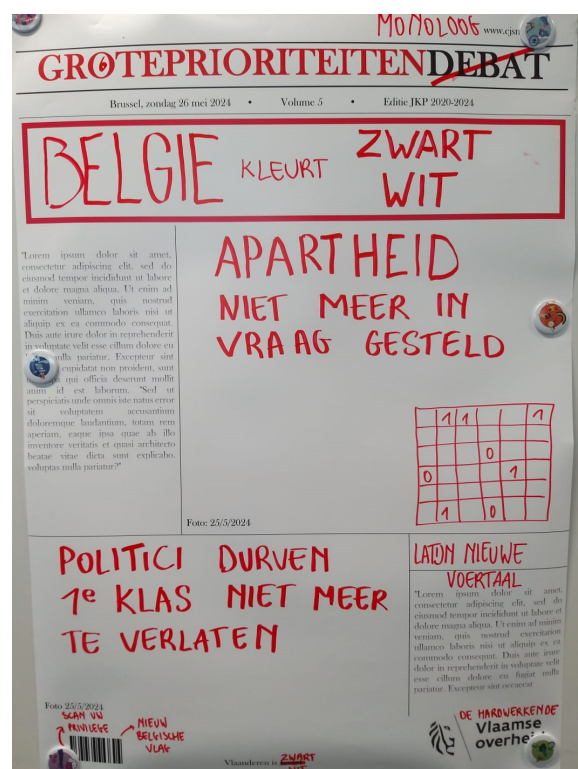 MONOLOOG www.cjsm
GROTEPRIORITEITENDEBAT
Brussel, zondag 26 mei 2024 • Volume 5 • Editie JKP 2020-2024
BELGIE KLEURT ZWART
WIT
"Lorem ipsum dolor sit amet,
consectetur adipiscing elit, sed do
eiusmod tempor incididunt ut labore
et dolore magna aliqua. Ut enim ad
minim veniam, quis nostrud
exercitation ullamco laboris nisi ut
aliquip ex ea commodo consequat.
Duis aute irure dolor in reprehenderit
in voluptate velit esse cillum dolore eu
nulla pariatur. Excepteur sint
cupidatat non proident, sunt
qui officia deserunt mollit
anim id est laborum. "Sed ut
perspiciatis unde omnis iste natus error
sit voluptatem accusantium
doloremque laudantium, totam rem
aperiam, eaque ipsa quae ab illo
inventore veritatis et quasi architecto
beatae vitae dicta sunt explicabo.
voluptas nulla pariatur?"
APARTHEID
NIET MEER IN
VRAAG GESTELD
1 1 1
0
0 1
1 0
Foto: 25/5/2024
POLITICI DURVEN
1e KLAS NIET MEER
TE VERLATEN
Foto 25/5/2024
LATIJN NIEUWE
VOERTAAL
"Lorem ipsum dolor sit amet,
consectetur adipiscing elit, sed do
eiusmod tempor incididunt ut labore et
dolore magna aliqua. Ut enim ad minim
veniam, quis nostrud exercitation
ullamco laboris nisi ut aliquip ex ea
commodo consequat. Duis aute irure
dolor in reprehenderit in voluptate velit
esse cillum dolore eu fugiat nulla
pariatur. Excepteur sint occaecat
SCAN UW
PRIVILEGE
NIEUW
BELGISCHE
VLAG
Vlaanderen is ZWART
WIT
DE HARDWERKENDE
Vlaamse
overheid